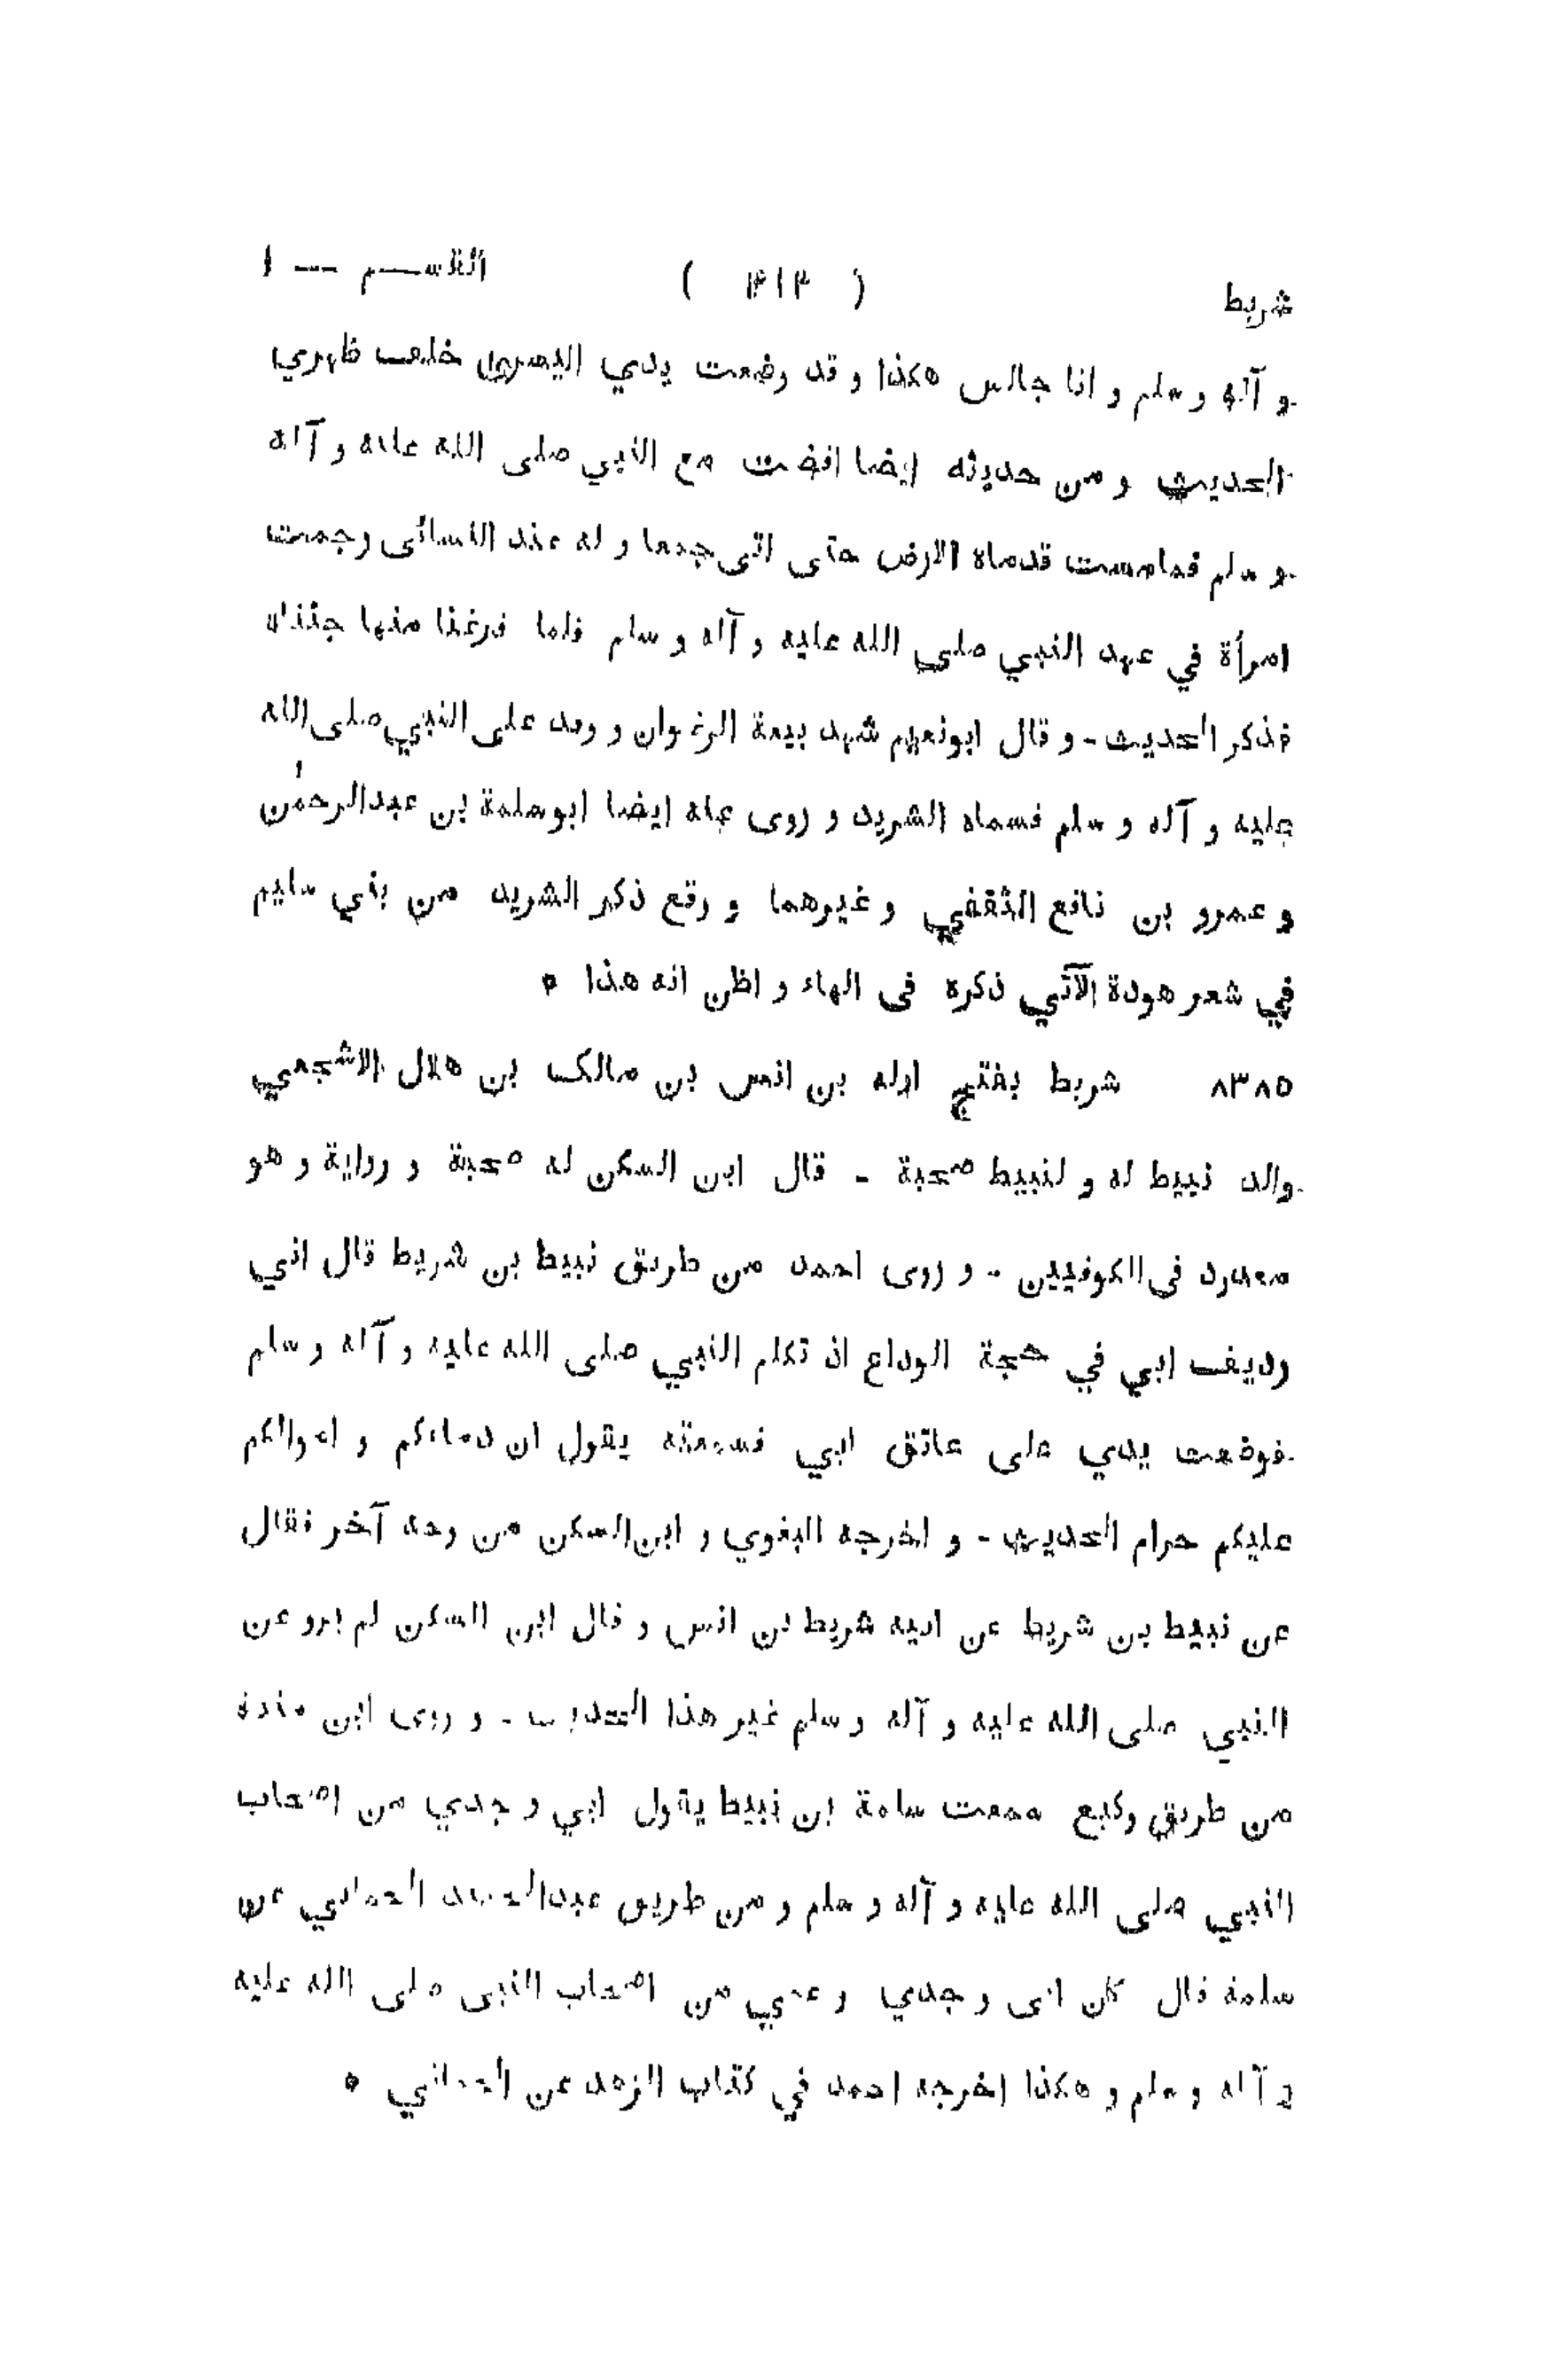 شريط ( ۴۱۴ ) القسم — ١
و آله و سلم و انا جالس هكذا و قد وضعت يدي اليسرى خلف ظهري
الحديث و من حديثه ايضا افضت مع النبي صلى الله عليه و آله
و سلم فما مست قدماه الارض حتى اتى جمعا و له عند النسائى رجمت
امرأة في عهد النبي صلى الله عليه و آله و سلم فلما فرغنا منها جئناه
فذكر الحديث - و قال ابونعيم شهد بيعة الرضوان و وفد على النبي صلى الله
عليه و آله و سلم فسماه الشريد و روى عنه ايضا ابوسلمة بن عبدالرحمٰن
و عمرو بن نافع الثقفي و غيرهما و وقع ذكر الشريد من بني سليم
في شعر هودة الآتي ذكره فى الهاء و اظن انه هذا *
٨٣٨٥ شريط بفتح اوله بن انس بن مالك بن هلال الاشجعي
والد نبيط له و لنبيط صحبة - قال ابن السكن له صحبة و رواية و هو
معدود فى الكوفيين - و روى احمد من طريق نبيط بن شريط قال اني
رديف ابي في حجة الوداع اذ تكلم النبي صلى الله عليه و آله و سلم
فوضعت يدي على عاتق ابي فسمعته يقول ان دماءكم و اموالكم
عليكم حرام الحديث - و اخرجه البغوي و ابن السكن من وجه آخر فقال
عن نبيط بن شريط عن ابيه شريط بن انس و قال ابن السكن لم يرو عن
النبي صلى الله عليه و آله و سلم غير هذا الحديث - و روى ابن مندة
من طريق وكيع سمعت سلمة بن نبيط يقول ابي و جدي من اصحاب
النبي صلى الله عليه و آله و سلم و من طريق عبدالحميد الحماني عن
سلمة قال كان ابى و جدي و عمي من اصحاب النبى صلى الله عليه
و آله و سلم و هكذا اخرجه احمد في كتاب الزهد عن الحماني *